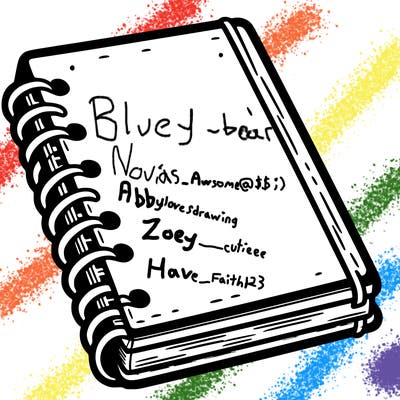 Bluey_bear
Novias_Awsome@$$;)
Abbylovesdrawing
Zoey__cutieee
Have_Faith123